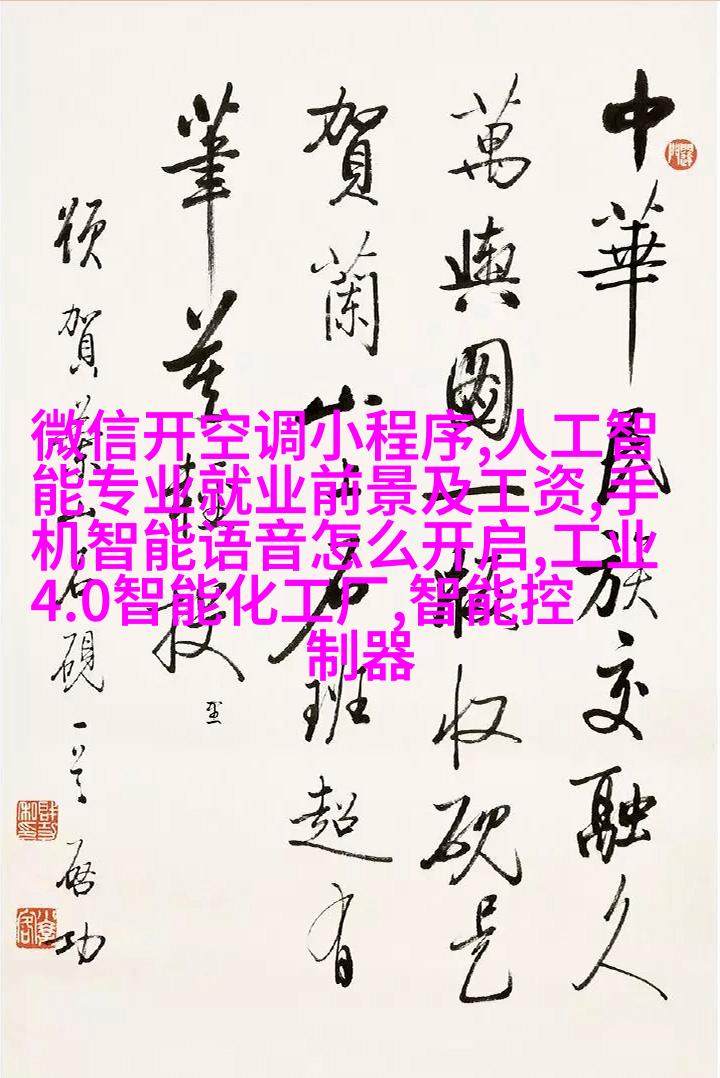 中華民族交融久
萬輿圖一職收硯是
賀蘭山上石班超有
筆莫輕投 里
頌賀蘭山石硯一首 启功
微信开空调小程序,人工智
能专业就业前景及工资,手
机智能语音怎么开启,工业
4.0智能化工厂,智能控
制器